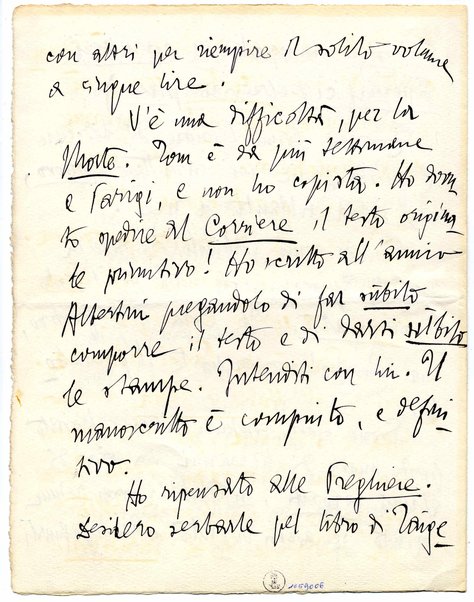 con altri per riempire il solito volume
a cinque lire.
V'è una difficoltà, per la
Morte. Tom è da più settimane
a Parigi, e non ho copista. Ho dovu-
to spedire al Corriere il testo origina-
le primitivo! Ho scritto all'amico
Albertini pregandolo di far sùbito
comporre il testo e di darti sùbito
le stampe. Intenditi con lui. Il
manoscritto è compiuto, e defini-
tivo.
Ho ripensato alle Preghiere.
Desidero serbarle pel libro di
1059006